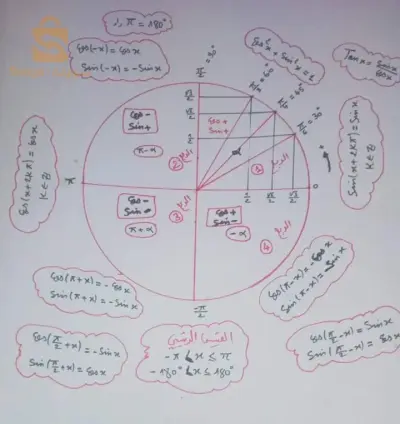 π = 180°
cos(-x) = cosx
sin(-x) = -sinx
cos²x + sin²x = 1
Tanx = sinx/cosx
π/2 = 90°
π/3 = 60°
π/4 = 45°
π/6 = 30°
√3/2
√2/2
1/2
cos -
sin +
π-x
②
cos +
sin +
α
①
الربع
cos(x+2kπ) = cosx
K∈Z
sin(x+2kπ) = sinx
K∈Z
π
0
1/2
√2/2
√3/2
الربع
③
cos -
sin -
π+α
cos +
sin -
-α
الربع
④
-π/2
cos(π+x) = -cosx
sin(π+x) = -sinx
cos(π-x) = -cosx
sin(π-x) = -sinx
cos(π/2+x) = -sinx
sin(π/2+x) = cosx
القيس الرئيسي
-π < x ≤ π
-180° < x ≤ 180°
cos(π/2-x) = sinx
sin(π/2-x) = cosx